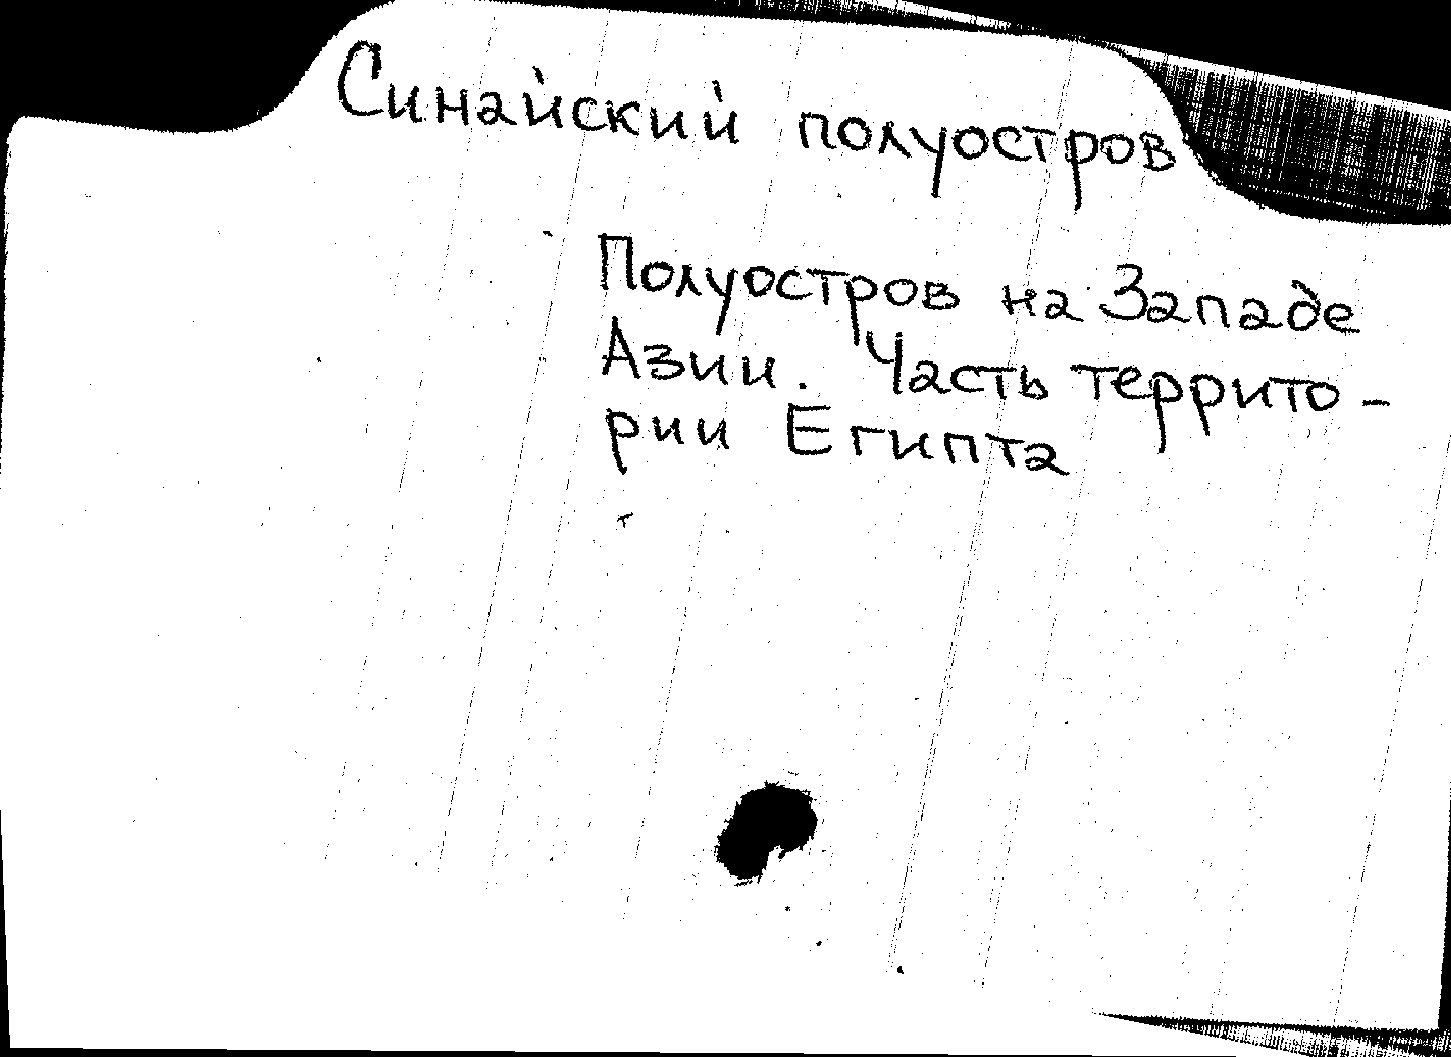 Синайский полуостров
Полуостров на Западе
Азии. Часть террито-
рии Египта